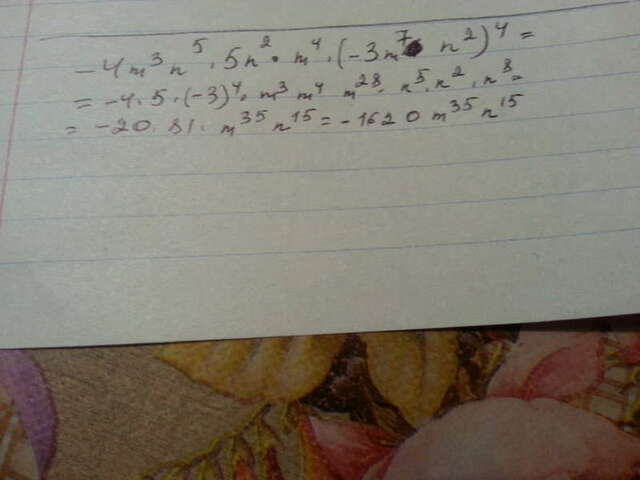 -4m³n⁵·5n²·m⁴·(-3m⁷ n²)⁴=
=-4·5·(-3)⁴·m³m⁴m²⁸·n⁵·n²·n⁸=
=-20·81·m³⁵n¹⁵=-1620m³⁵n¹⁵